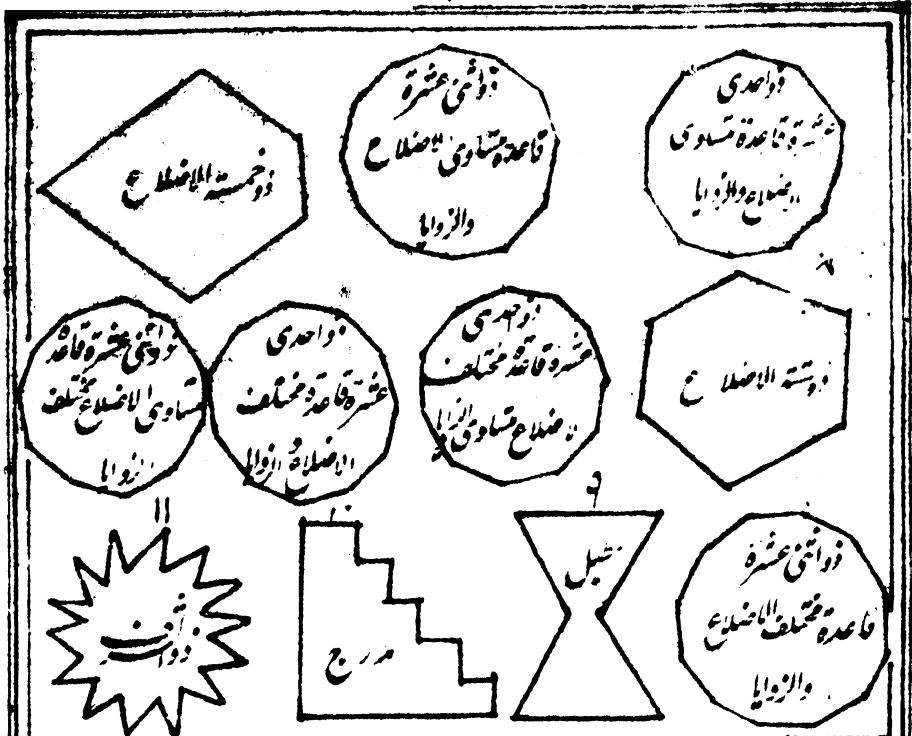 ذواحدی
عشرة قاعدة متساوی
الاضلاع والزوایا
ذواثنی عشرة
قاعدة متساوی الاضلاع
والزوایا
ذوخمسة الاضلاع
ذوستة الاضلاع
ذواحدی
عشرة قاعدة مختلف
الاضلاع متساوی الزوایا
ذواحدی
عشرة قاعدة مختلف
الاضلاع و الزوایا
ذواثنی عشرة قاعدة
متساوی الاضلاع مختلف
الزوایا
ذواثنی عشرة
قاعدة مختلف الاضلاع
والزوایا
۹
۱۰
مدرج
۱۱